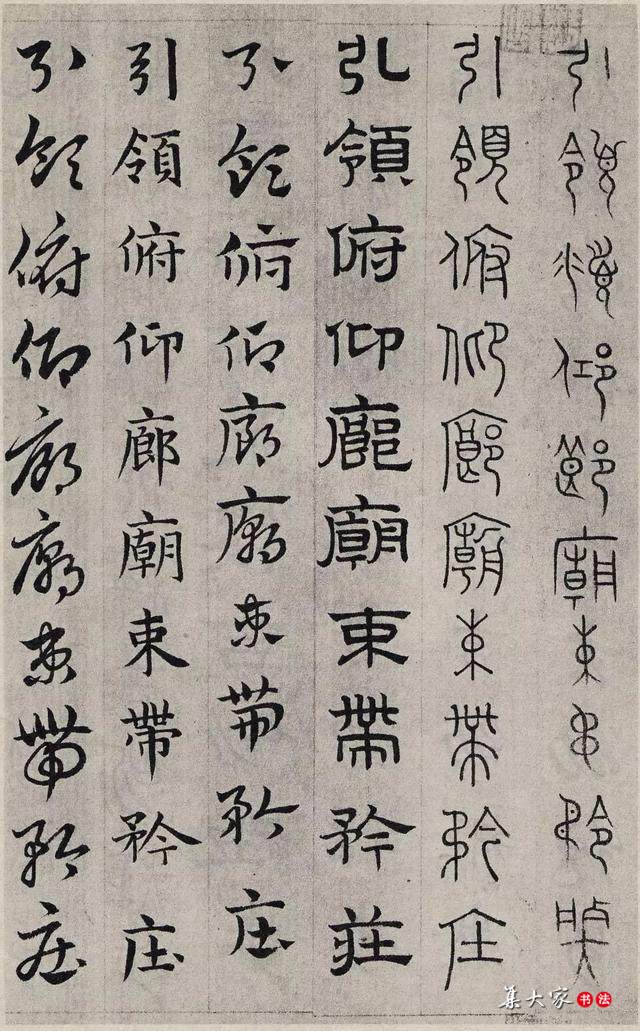 引領俯仰廊廟束帶矜莊
引領俯仰廊廟束帶矜庄
引領俯仰廊廟束帶矜莊
引領俯仰廊廟束帶矜庄
引領俯仰廊廟束帶矜庄
引領俯仰廊廟束帶矜庄
集大家书法